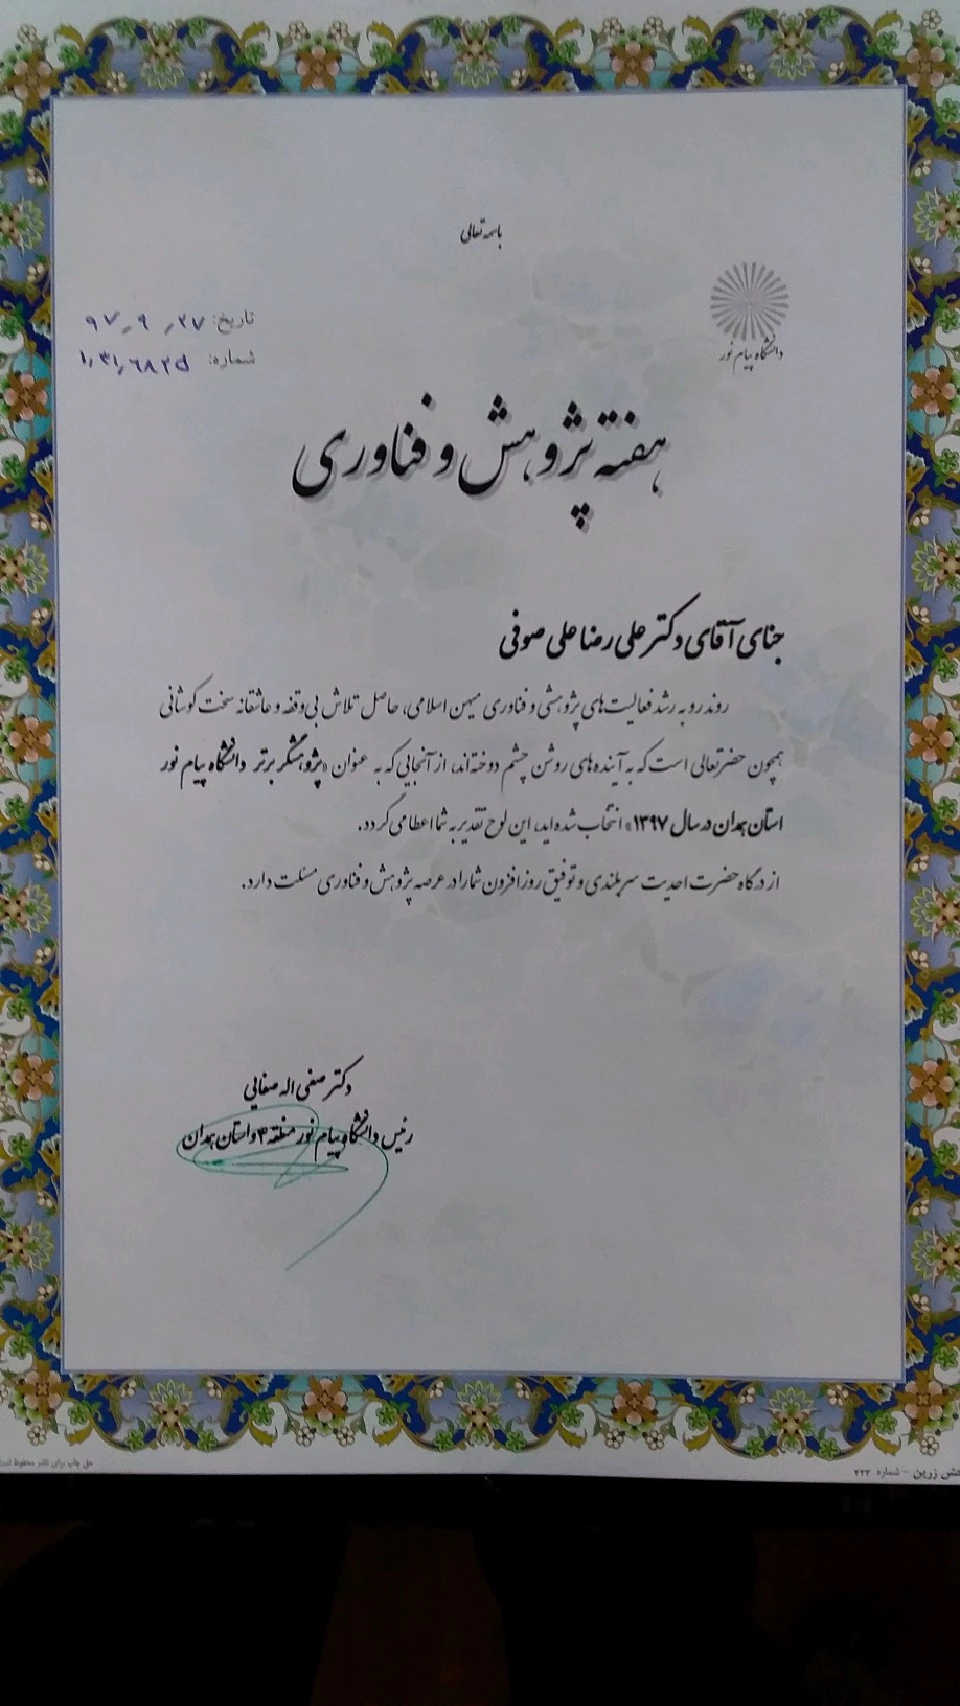 باسمه تعالی
دانشگاه پیام نور
تاریخ: ۹۷٫۹٫۲۷
شماره:
هفته پژوهش و فناوری
جنای آقای دکتر علی رضا علی صوفی
روند رو به رشد فعالیت‌های پژوهشی و فناوری میهن اسلامی، حاصل تلاش بی‌وقفه و عاشقانه سخت کوشانی
همچون حضرتعالی است که به آینده‌های روشن چشم دوخته‌اند، از آنجایی که به عنوان «پژوهشگر برتر دانشگاه پیام نور
استان همدان در سال ۱۳۹۷» انتخاب شده اید، این لوح تقدیر به شما اعطا می گردد.
از درگاه حضرت احدیت سربلندی و توفیق روزافزون شما را در عرصه پژوهش و فناوری مسئلت دارد.
دکتر صفی اله صفایی
رئیس دانشگاه پیام نور منطقه ۴ و استان همدان
حق چاپ برای ناشر محفوظ است
زرین - شماره ۴۲۳